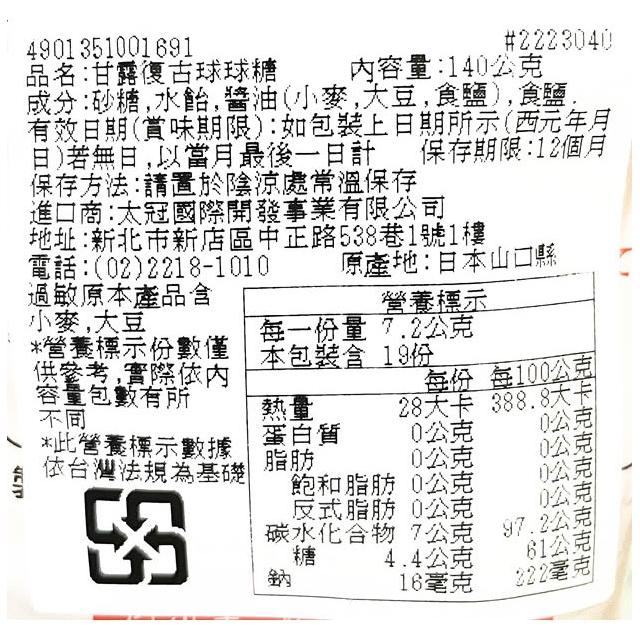 4901351001691 #2223040
品名:甘露復古球球糖 內容量:140公克
成分:砂糖,水飴,醬油(小麥,大豆,食鹽),食鹽.
有效日期(賞味期限):如包裝上日期所示(西元年月
日)若無日,以當月最後一日計 保存期限:12個月
保存方法:請置於陰涼處常溫保存
進口商:太冠國際開發事業有限公司
地址:新北市新店區中正路538巷1號1樓
電話:(02)2218-1010 原產地:日本山口縣
過敏原本產品含
小麥,大豆
*營養標示份數僅
供參考,實際依內
容量包數有所
不同
*此營養標示數據
依台灣法規為基礎
營養標示
每一份量 7.2公克
本包裝含 19份
每份 每100公克
熱量 28大卡 388.8大卡
蛋白質 0公克 0公克
脂肪 0公克 0公克
飽和脂肪 0公克 0公克
反式脂肪 0公克 0公克
碳水化合物 7公克 97.2公克
糖 4.4公克 61公克
鈉 16毫克 222毫克